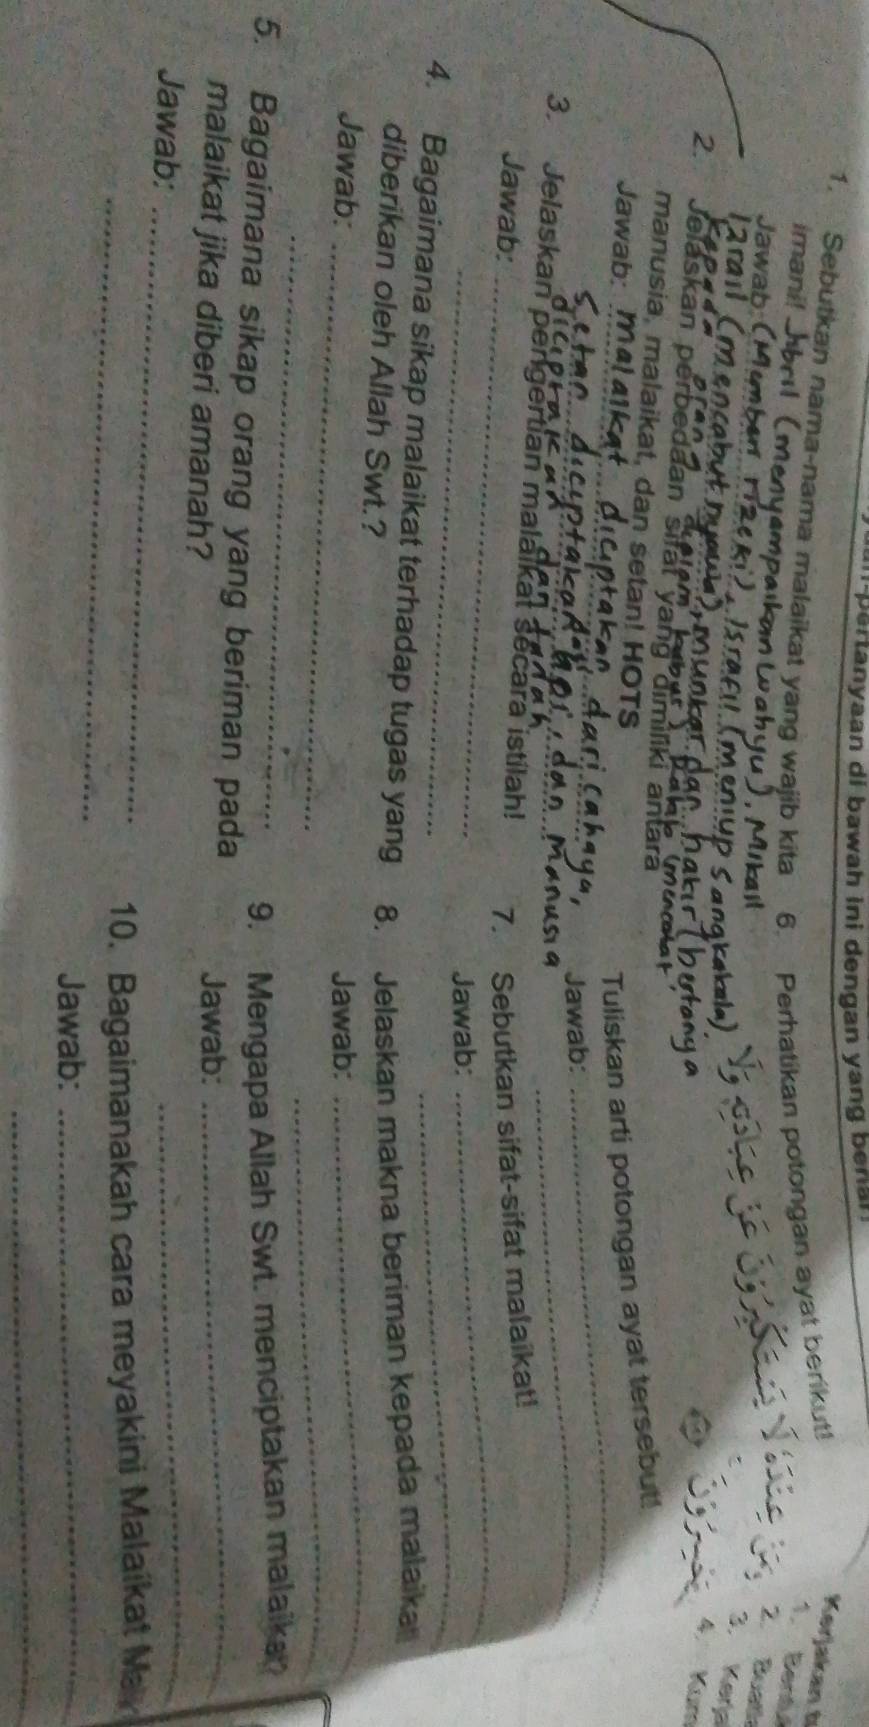 pertanyaan di bawah ini dengan yang benar!
1. Sebutkan nama-nama malaikat yang wajib kita
imani! Jibril (menyampaikan wahyu), Mikail
Jawab: (Memberi rizeki), Israfil (meniup sangkakala),
Izrail (mencabut nyawa), munkar dan nakir (bertanya
kepada orang dialam kubur),
2. Jelaskan perbedaan sifat yang dimiliki antara
manusia, malaikat, dan setan! HOTS
Jawab: malaikat diciptakan dari cahaya,
setan diciptakan dari api, dan manusia
diciptakan dari tanah
3. Jelaskan pengertian malaikat secara istilah!
Jawab:
4. Bagaimana sikap malaikat terhadap tugas yang
diberikan oleh Allah Swt.?
Jawab:
5. Bagaimana sikap orang yang beriman pada
malaikat jika diberi amanah?
Jawab:
6. Perhatikan potongan ayat berikut!
وَمَنْ عِنْدَهُ لَا يَسْتَكْبِرُوْنَ عَنْ عِبَادَتِهِ وَلَا
يَسْتَحْسِرُوْنَ
Tuliskan arti potongan ayat tersebut!
Jawab:
7. Sebutkan sifat-sifat malaikat!
Jawab:
8. Jelaskan makna beriman kepada malaikat!
Jawab:
9. Mengapa Allah Swt. menciptakan malaikat?
Jawab:
10. Bagaimanakah cara meyakini Malaikat
Jawab:
Kerjakan
1.
2.
3.
4.